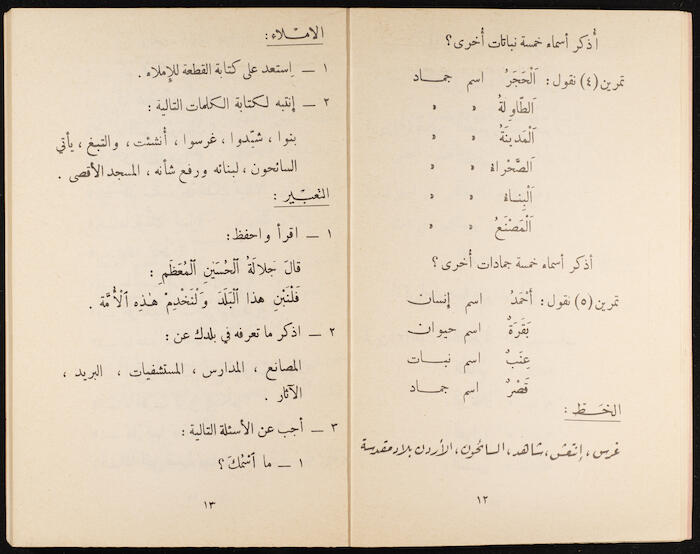 أُذكر أسماء خمسة نباتات أُخرى ؟
تمرين (٤) نقول : اَلْحَجَرُ اسم جماد
اَلطَّاوِلَةُ » »
اَلْمَدينَةُ » »
اَلصَّحْراءُ » »
اَلْبِناءُ » »
اَلْمَصْنَعُ » »
أذكر أسماء خمسة جمادات أُخرى ؟
تمرين (٥) نقول : أَحْمَدُ اسم إنسان
بَقَرَةٌ اسم حيوان
عِنَبٌ اسم نبات
قَصْرٌ اسم جماد
الخَـط :
غرس ، إنتعش ، شاهد ، السائحون ، الأردن بلاد مقدسة
١٢
الامْلاء :
١ – اِستعد على كتابة القطعة للإملاء .
٢ – إنتبه لكتابة الكلمات التالية :
بنوا ، شيّدوا ، غرسوا ، أُنشئت ، والتبغ ، يأتي
السائحون ، لبنائه ورفع شأنه ، المسجد الأقصى .
التعبّير :
١ – اقرأ واحفظ :
قالَ جَلالَةُ الْحُسَيْنِ الْمُعَظَّمِ :
فَلْنَبْنِ هذا الْبَلَدَ وَلْنَخْدِمْ هٰذِهِ الْأُمَّة .
٢ – اذكر ما تعرفه في بلدك عن :
المصانع ، المدارس ، المستشفيات ، البريد ،
الآثار .
٣ – أجب عن الأسئلة التالية :
١ – ما اَسْمُكَ ؟
١٣